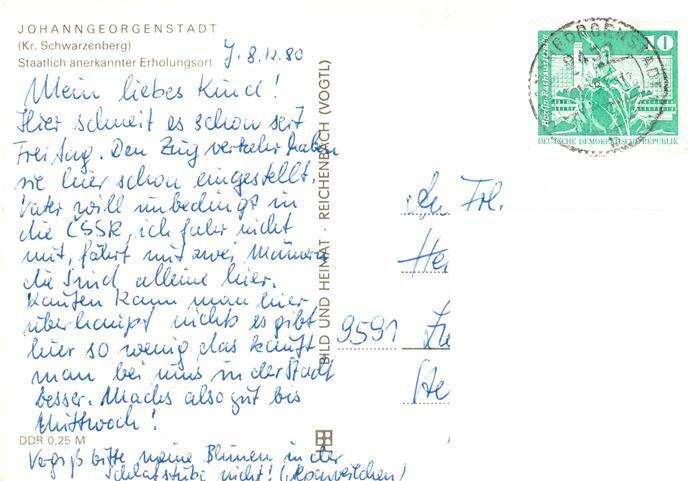 JOHANNGEORGENSTADT
(Kr. Schwarzenberg)
Staatlich anerkannter Erholungsort
J. 8.12.80
Mein liebes Kind!
Hier schneit es schon seit
Freitag. Den Zugverkehr haben
sie hier schon eingestellt.
Vater will unbedingt in
die ČSSR, ich fahr nicht
mit, fährt mit zwei Männern
die sind alleine hier.
Kaufen kann man hier
überhaupt nichts es gibt
hier so wenig das kauft
man bei uns in der Stadt
besser. Machs also gut bis
Mittwoch!
DDR 0,25 M
Vergiß bitte meine Blumen in der
Schlafstube nicht! (Alpenveilchen)
BILD UND HEIMAT · REICHENBACH (VOGTL)
10
DEUTSCHE DEMOKRATISCHE REPUBLIK
An Frl.
He
9591